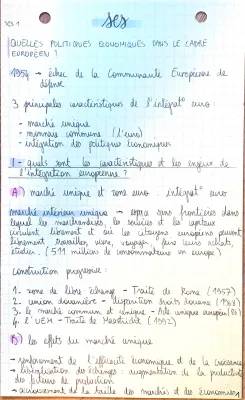 SES 1
ses
QUELLES POLITIQUES ECONOMIQUES DANS LE CADRE
EUROPÉEN ?
1954 → échec de la Communauté Européenne de
défense
3 principales caractéristiques de l'intégrat° euro :
- marché unique
- monnaie commune (l'euro)
- intégration des politiques économiques
1 - quels sont les caractéristiques et les enjeux de
l'intégration européenne ?
A) marché unique et zone euro intégrat°
marché intérieur unique → espace sans frontières dans
lequel les marchandises, les services et les capitaux
circulent librement et où les citoyens européens peuvent
librement travailler, vivre, voyager, faire leurs achats,
étudier. (511 millions de consommateurs en europe)
Construction progressive :
1. zone de libre échange - Traité de Rome (1957)
2. union douanière - disparition droits douane (1968)
3. le marché commun et unique - Acte unique européen (86)
4. l'UEM - Traité de Maastricht (1992)
B) les effets du marché unique
→ renforcement de l'efficacité économique et de la croissance
→ libéralisation des échanges : augmentation de la productivité
des facteurs de production
→ accroissement de la taille des marchés et des économies